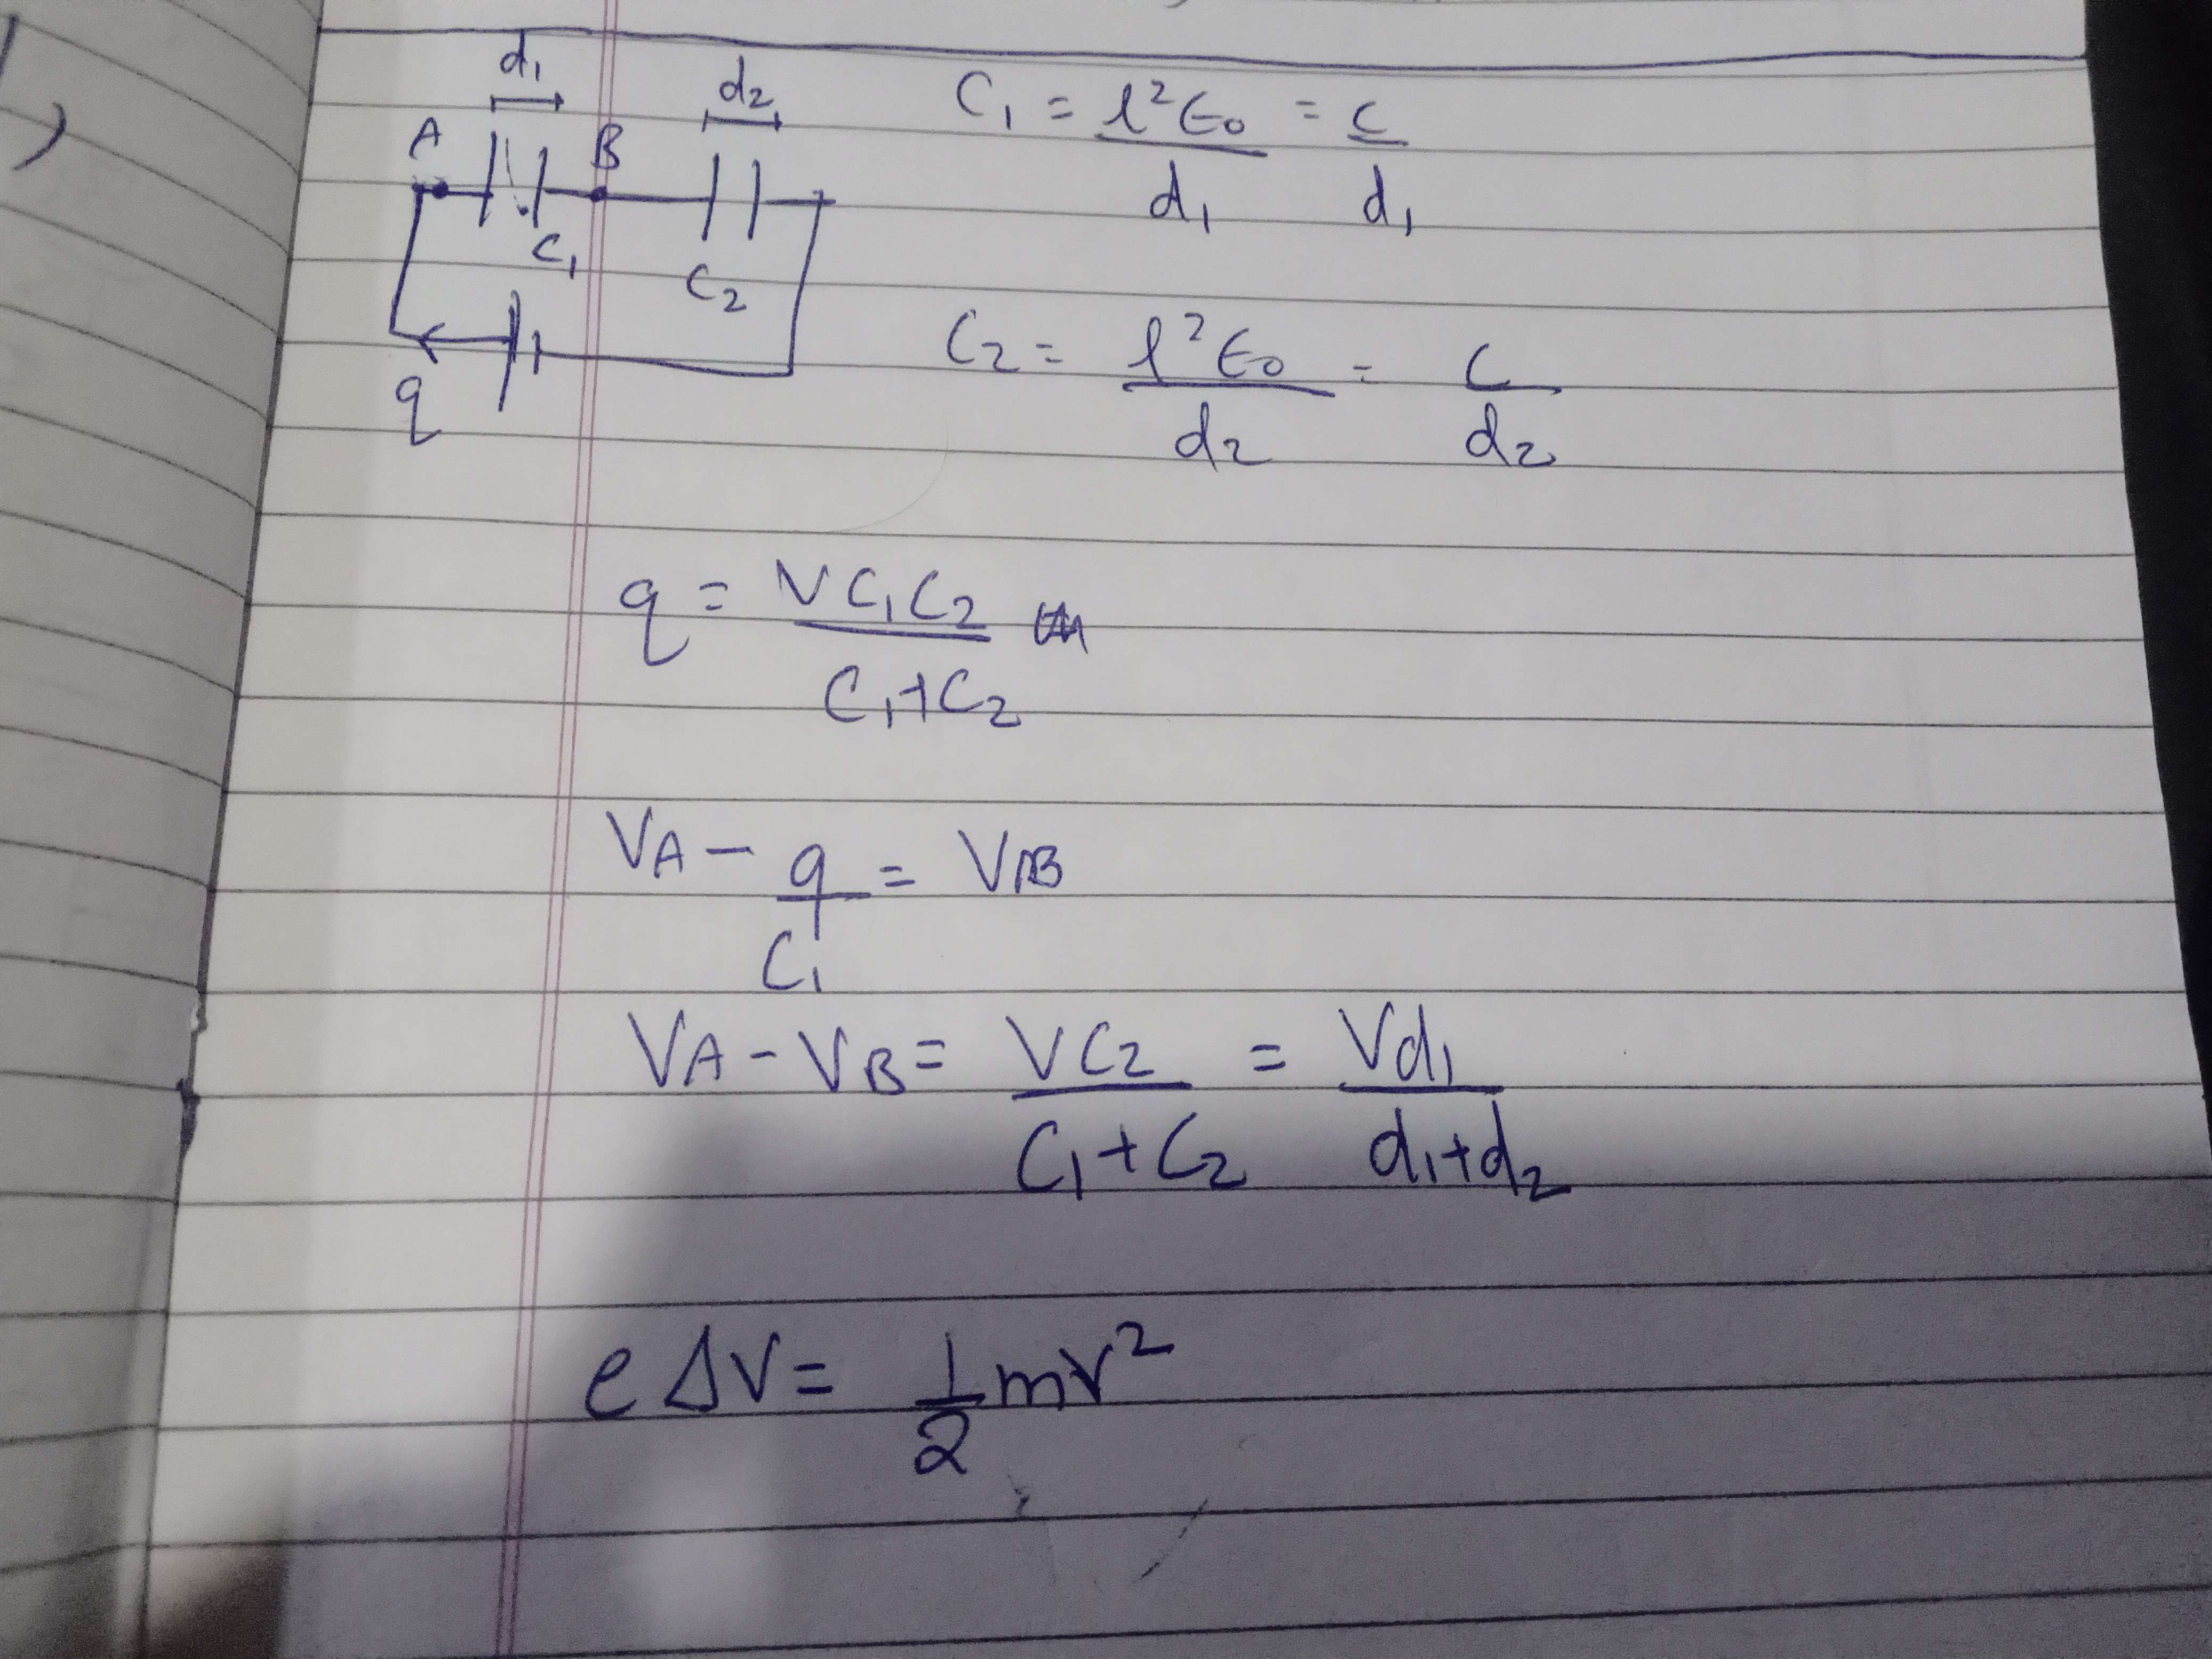 )
d₁ d₂
A B
C₁ C₂
q
C₁ = l²ϵ₀/d₁ = c/d₁
C₂ = l²ϵ₀/d₂ = C/d₂
q = VC₁C₂/C₁+C₂
VA − q/C₁ = VB
VA − VB = VC₂/C₁+C₂ = Vd₁/d₁+d₂
eΔV = 1/2 mv²